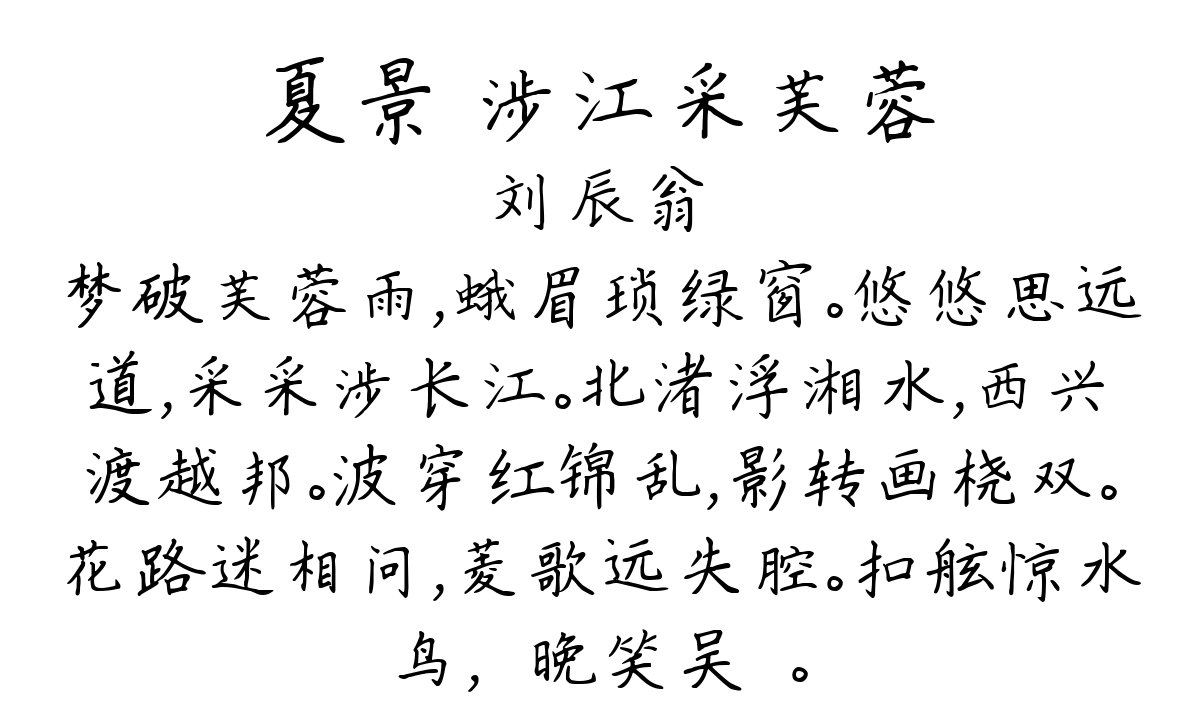 夏景 涉江采芙蓉
刘辰翁
梦破芙蓉雨,蛾眉琐绿窗。悠悠思远
道,采采涉长江。北渚浮湘水,西兴
渡越邦。波穿红锦乱,影转画桡双。
花路迷相问,菱歌远失腔。扣舷惊水
鸟,晚笑吴 。